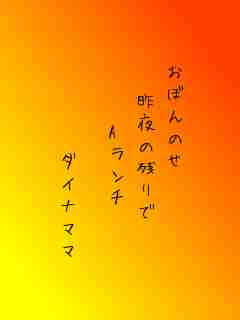 おぼんのせ
昨夜の残りで
Aランチ
ダイナママ